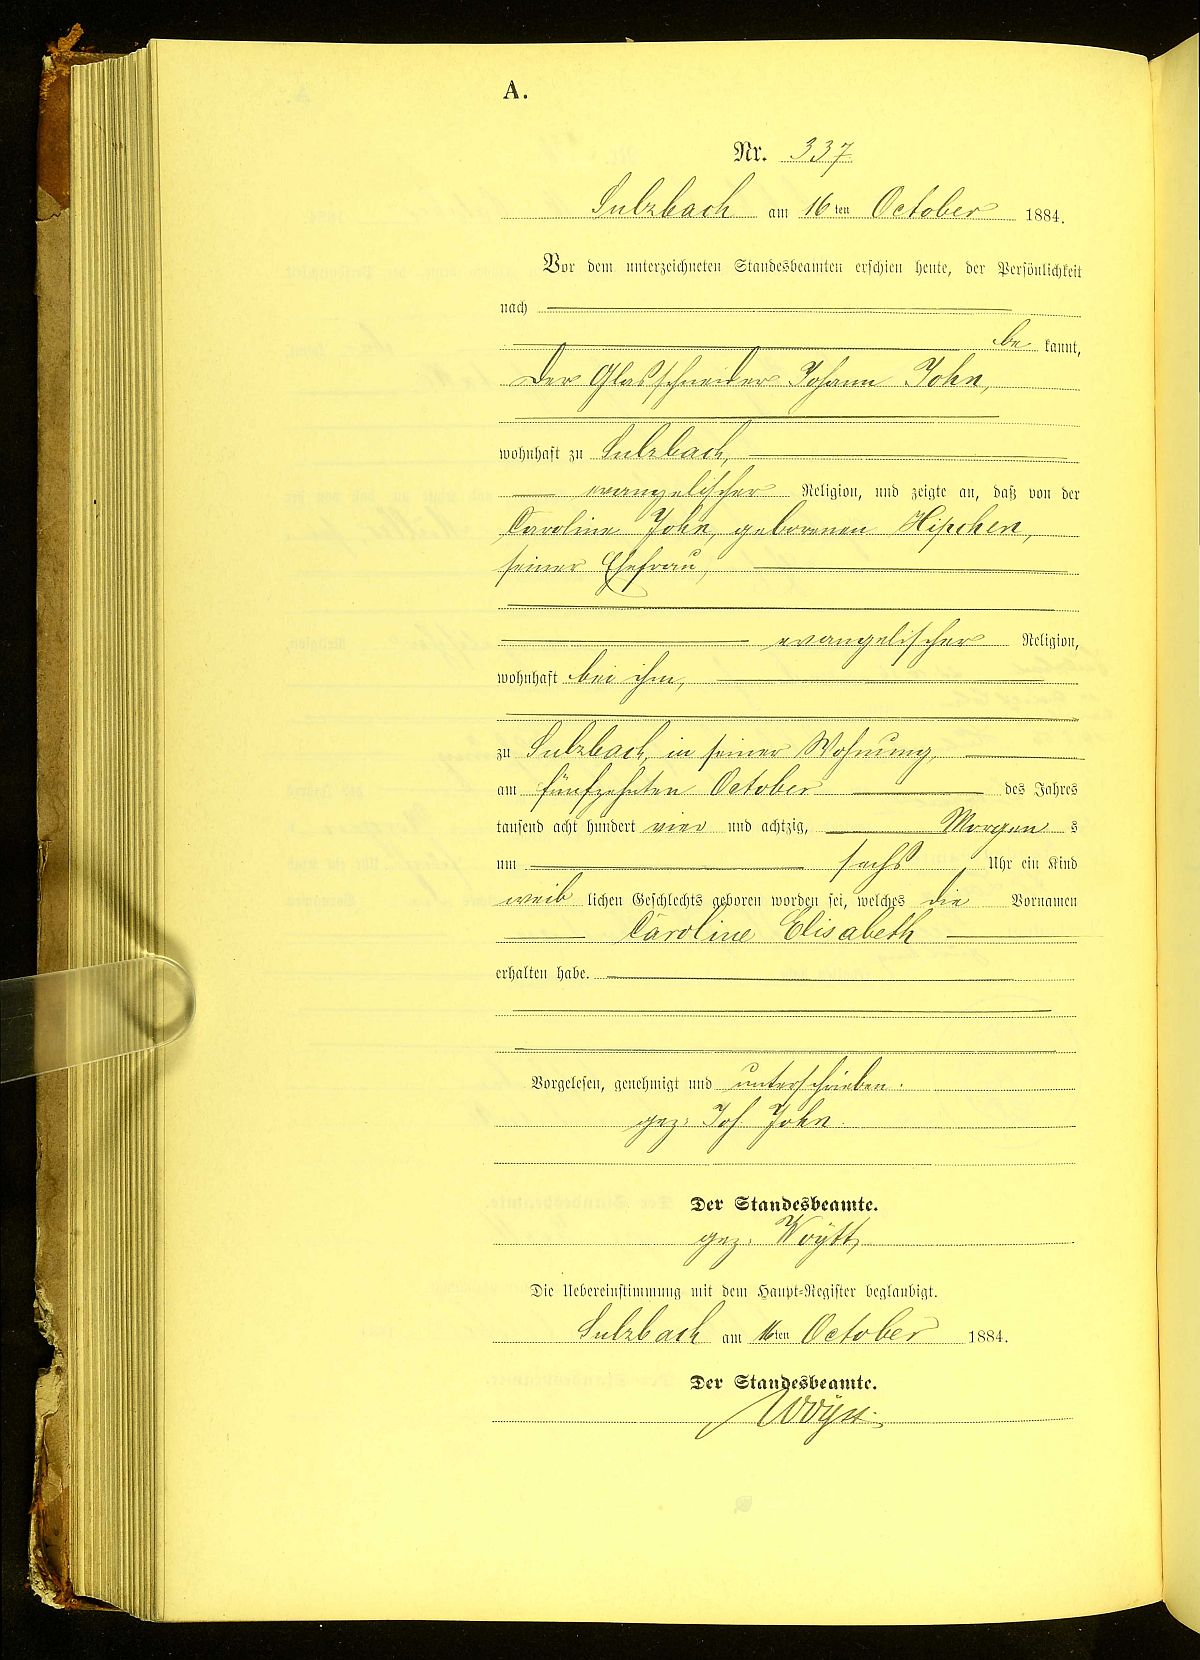 A.
Nr. 337
Sulzbach am 16ten October 1884.
Vor dem unterzeichneten Standesbeamten erschien heute, der Persönlichkeit
nach
be kannt,
der Glasschneider Johann John,
wohnhaft zu Sulzbach,
evangelischer Religion, und zeigte an, daß von der
Caroline John, geborenen Hipchen,
seiner Ehefrau,
evangelischer Religion,
wohnhaft bei ihm,
zu Sulzbach, in seiner Wohnung,
am fünfzehnten October des Jahres
tausend acht hundert vier und achtzig, Morgen s
um sechs Uhr ein Kind
weib lichen Geschlechts geboren worden sei, welches die Vornamen
Caroline Elisabeth
erhalten habe.
Vorgelesen, genehmigt und unterschrieben.
gez: Joh John.
Der Standesbeamte.
gez: Woÿtt,
Die Uebereinstimmung mit dem Haupt-Register beglaubigt.
Sulzbach am 16ten October 1884.
Der Standesbeamte.
Woÿtt.